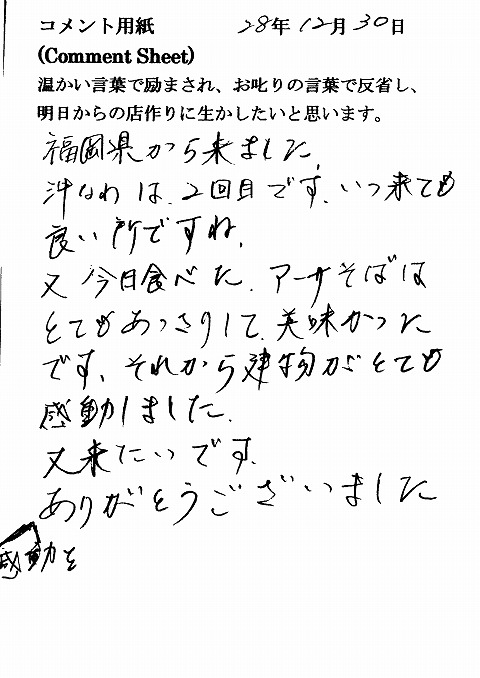 コメント用紙 28年12月30日
(Comment Sheet)
温かい言葉で励まされ、お叱りの言葉で反省し、
明日からの店作りに生かしたいと思います。
福岡県から来ました。
沖なわは、2回目です。いつ来ても
良い所ですね。
又 今日食べた、アーサそばは
とてもあっさりして、美味かった
です、それから建物がとても
感動しました。
又来たいです。
ありがとうございました
感動を